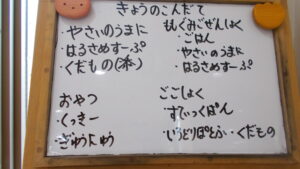 きょうのこんだて
・やさいのうまに
はるさめすーぷ
・くだもの(添)
おやつ
・くっきー
・ぎゅうにゅう
ももぐみごぜんしょく
・ごはん
・やさいのうまに
・はるさめすーぷ
ごごしょく
・すてぃっくぱん
・いろどりぽとふ・くだもの